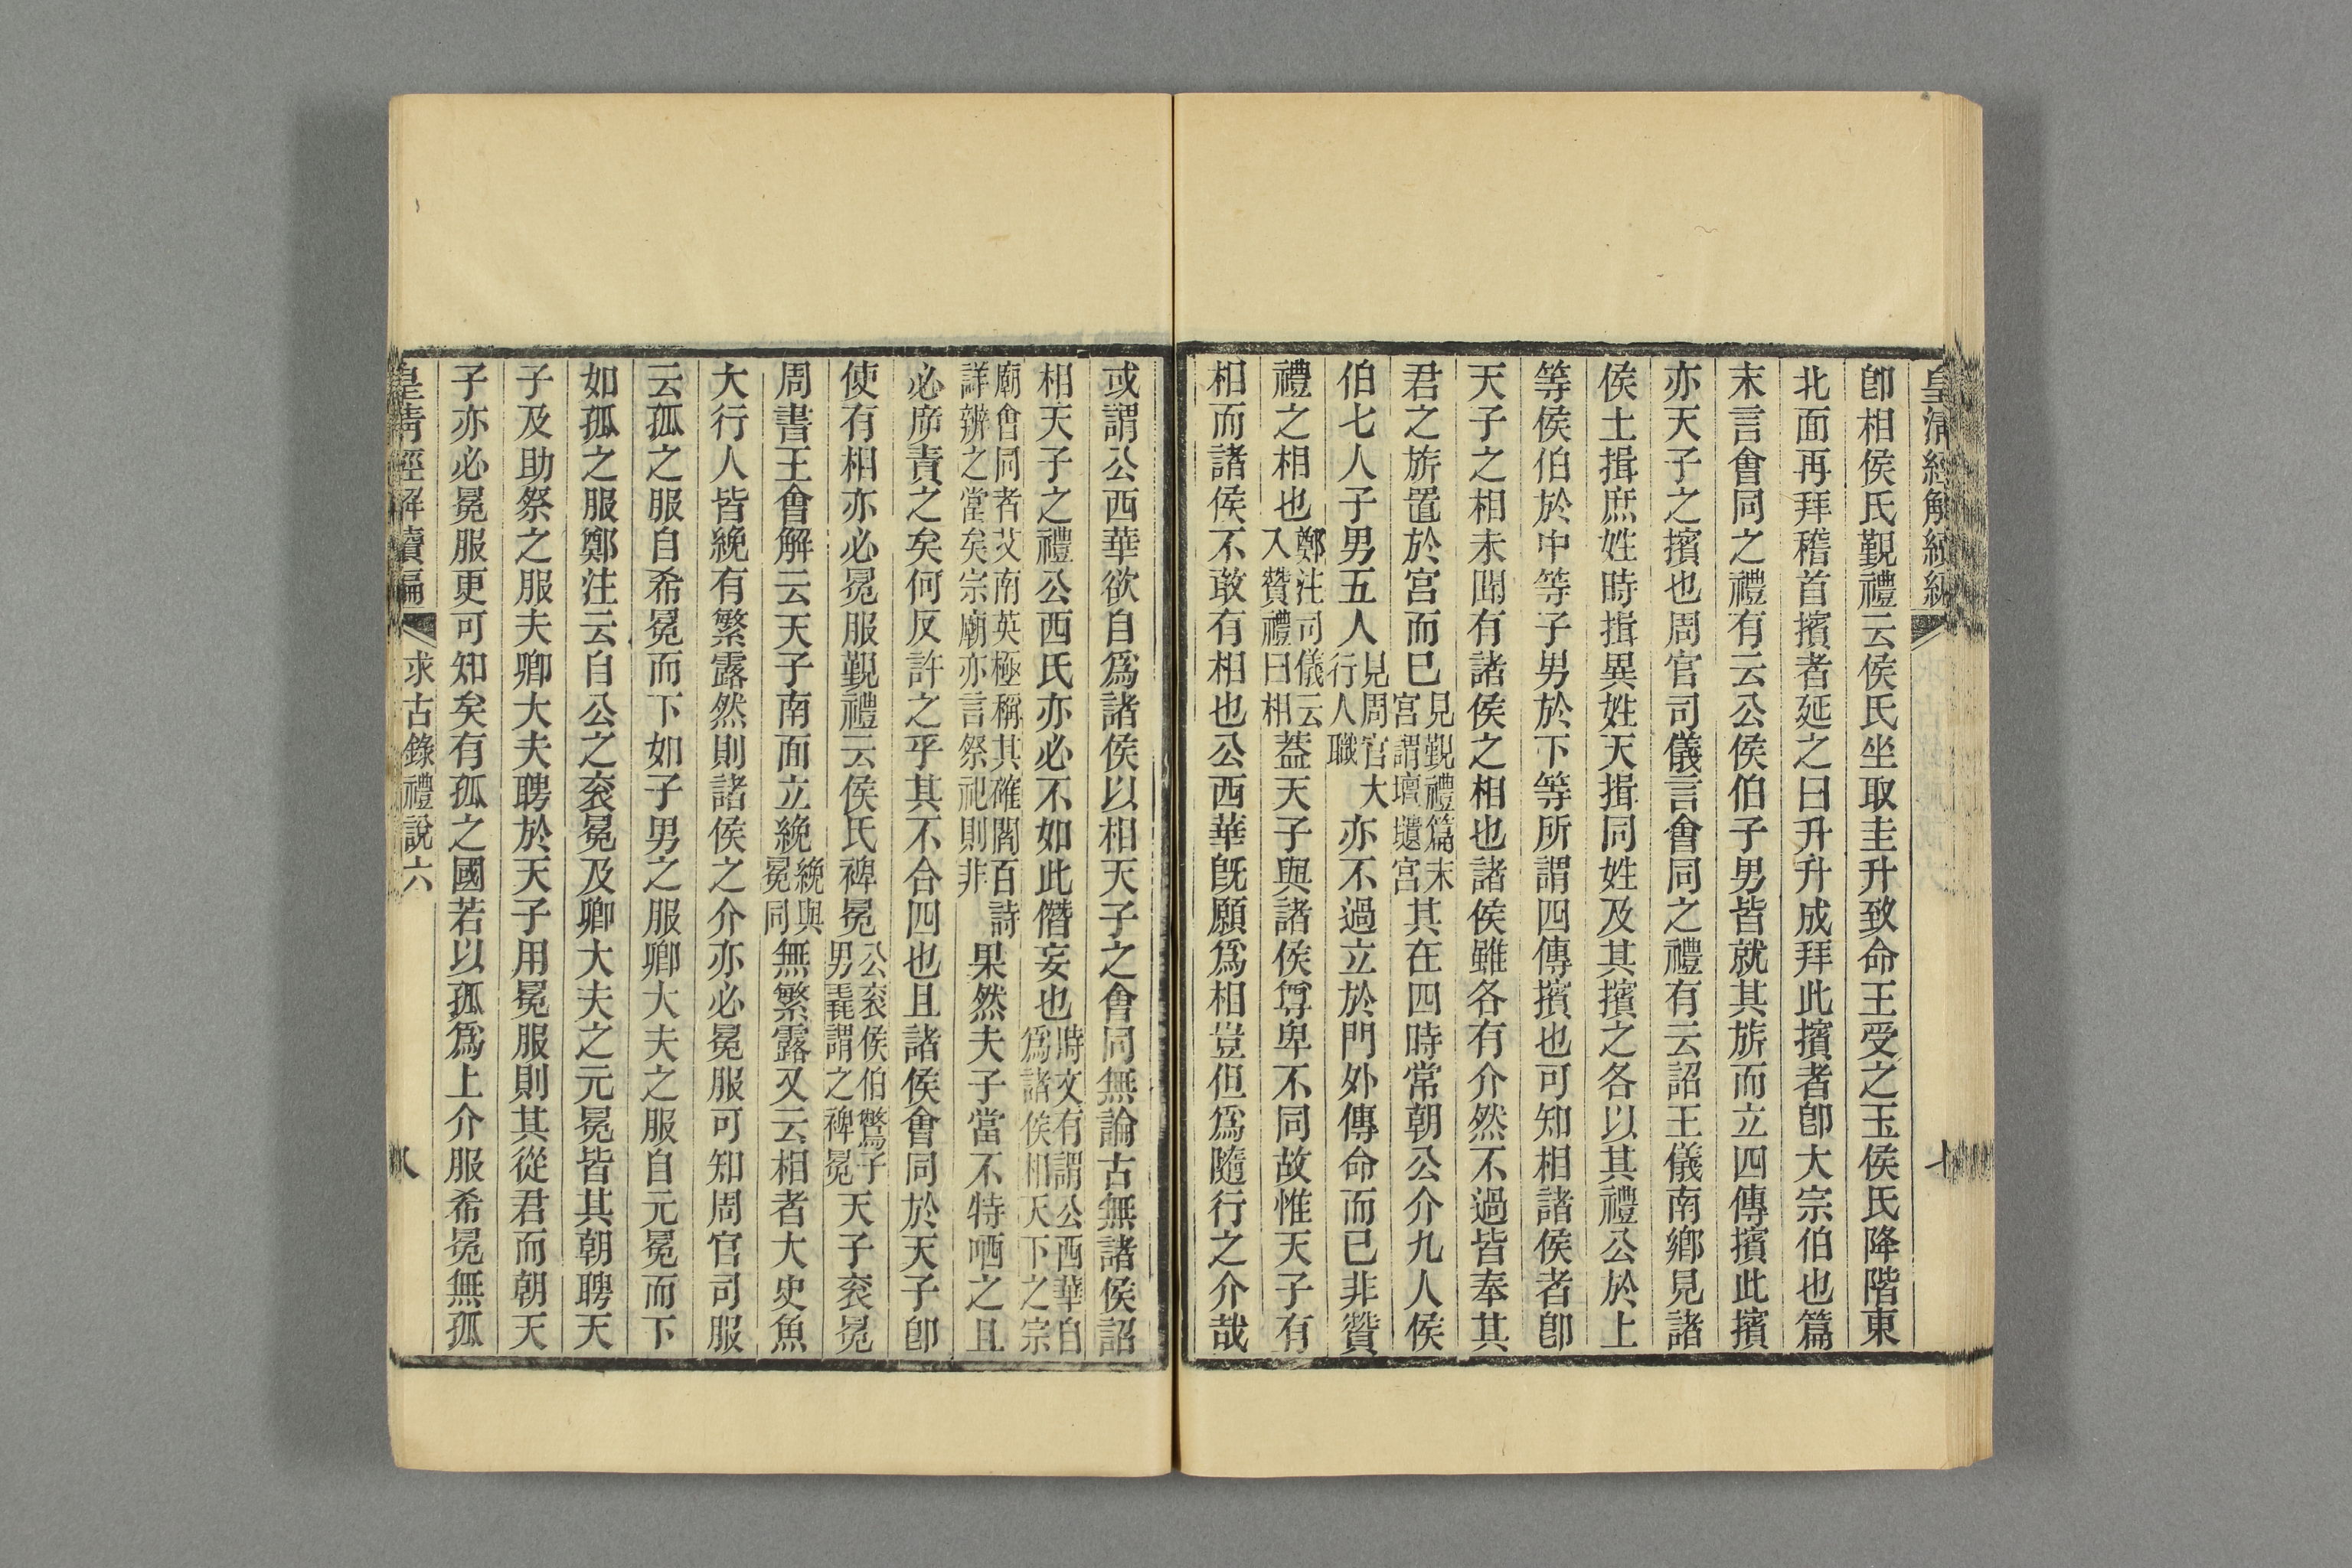 皇清經解續編
七
卽相侯氏覲禮云侯氏坐取圭升致命王受之玉侯氏降階東
北面再拜稽首擯者延之曰升升成拜此擯者卽大宗伯也篇
末言會同之禮有云公侯伯子男皆就其旂而立四傳擯此擯
亦天子之擯也周官司儀言會同之禮有云詔王儀南鄕見諸
侯土揖庶姓時揖異姓天揖同姓及其擯之各以其禮公於上
等侯伯於中等子男於下等所謂四傳擯也可知相諸侯者卽
天子之相未聞有諸侯之相也諸侯雖各有介然不過皆奉其
君之旂置於宮而已見覲禮篇末宮謂壇壝宮其在四時常朝公介九人侯
伯七人子男五人見周官大行人職亦不過立於門外傳命而已非贊
禮之相也鄭注司儀云入贊禮曰相蓋天子與諸侯尊卑不同故惟天子有
相而諸侯不敢有相也公西華旣願爲相豈但爲隨行之介哉
或謂公西華欲自爲諸侯以相天子之會同無論古無諸侯詔
相天子之禮公西氏亦必不如此僭妄也時文有謂公西華自爲諸侯相天下之宗
廟會同者艾南英極稱其確閻百詩詳辨之當矣宗廟亦言祭祀則非果然夫子當不特哂之且
必席責之矣何反許之乎其不合四也且諸侯會同於天子卽
使有相亦必冕服覲禮云侯氏裨冕公衮侯伯鷩子男毳謂之裨冕天子衮冕
周書王會解云天子南面立絻絻與冕同無繁露又云相者大史魚
大行人皆絻有繁露然則諸侯之介亦必冕服可知周官司服
云孤之服自希冕而下如子男之服卿大夫之服自元冕而下
如孤之服鄭注云自公之衮冕及卿大夫之元冕皆其朝聘天
子及助祭之服夫卿大夫聘於天子用冕服則其從君而朝天
子亦必冕服更可知矣有孤之國若以孤爲上介服希冕無孤
皇清經解續編
求古錄禮說六
八